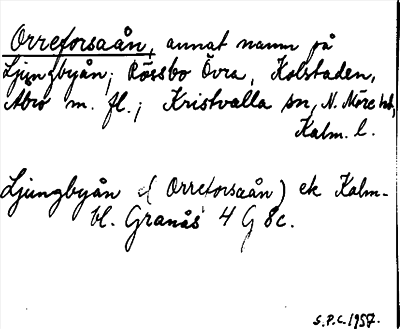 Orreforsaån, annat namn på
Ljungbyån; Rössbo Övra, Kolstaden,
Åbro m. fl.; Kristvalla sn, N. Möre hd,
Kalm. l.
Ljungbyån (Orreforsaån) ek Kalm-
bl. Granås 4 G 8c.
S.P.C. 1957.